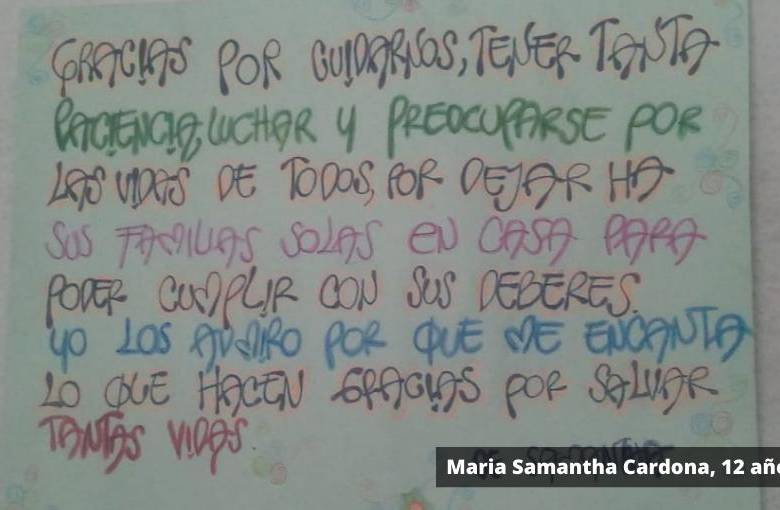 GRACIAS POR CUIDARNOS, TENER TANTA
PACIENCIA, LUCHAR Y PREOCUPARSE POR
LAS VIDAS DE TODOS, POR DEJAR HA
SUS FAMILIAS SOLAS EN CASA PARA
PODER CUMPLIR CON SUS DEBERES.
YO LOS ADMIRO POR QUE ME ENCANTA
LO QUE HACEN GRACIAS POR SALVAR
TANTAS VIDAS.
DE
Maria Samantha Cardona, 12 año